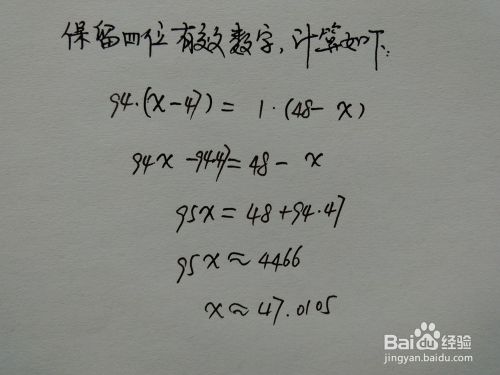 保留四位有效数字,计算如下:
94·(x-47)= 1·(48- x)
94x -94·47=48- x
95x = 48+94·47
95x ≈ 4466
x ≈ 47.0105
Baidu 经验
jingyan.baidu.com